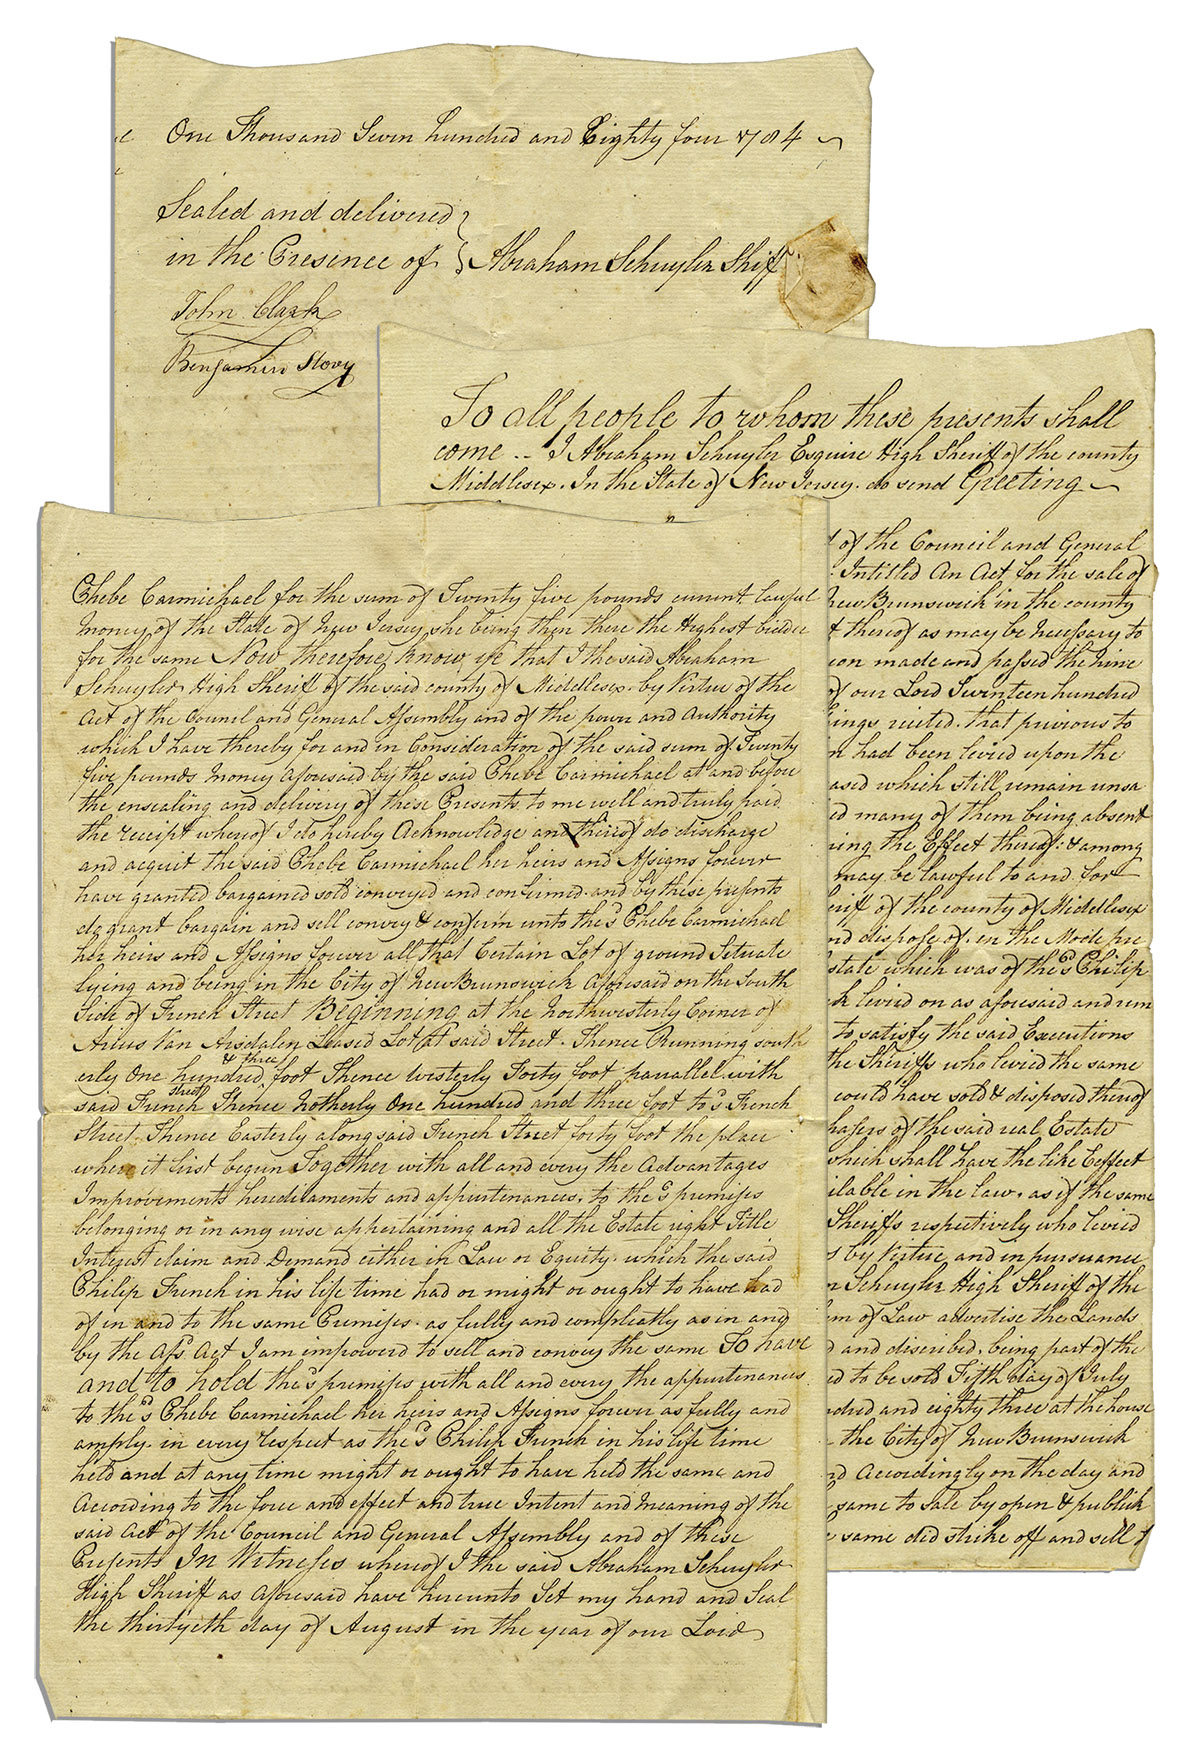 One Thousand Seven hundred and Eighty four 1784
Sealed and delivered
in the Presence of
Abraham Schuyler Shiff
John Clark
Benjamin Stovy
To all people to whom these presents shall
come -- I Abraham Schuyler Esquire High Sheriff of the county
Middlesex. In the State of New Jersey. do send Greeting
of the Council and General
Intitled An Act for the sale of
New Brunswick in the county
thereof as may be necessary to
made and passed the nine
of our Lord Seventeen hundred
recited. that previous to
had been levied upon the
which still remain unsa
many of them being absent
the Effect thereof: & among
may be lawful to and for
of the county of Middlesex
dispose of. in the Mode pre
state which was of the sd Philip
levied on as aforesaid and rem
to satisfy the said Executions
the Sheriffs who levied the same
could have sold & disposed thereof
of the said real Estate
which shall have the like Eeffect
in the law. as if the same
Sheriffs respectively who levied
by Virtue and in pursuance
Schuyler High Sheriff of the
of Law advertise the Lands
and discribed. being part of the
to be sold Fifth day of July
and eighty three at the house
the City of New Brunswick
Accordingly on the day and
same to sale by open & publick
same did strike off and sell t
Phebe Carmichael for the sum of Twenty five pounds current lawful
money of the State of New Jersey she being then there the Highest bidder
for the same Now therefore know ye that I the said Abraham
Schuyler High Sheriff of the said county of Middlesex. by Virtue of the
Act of the Council and General Assembly and of the power and Authority
which I have thereby for and in Consideration of the said sum of Twenty
five pounds Money aforesaid by the said Phebe Carmichael at and before
the ensealing and delivery of these Presents to me well and truly paid
the receipt whereof I do hereby Acknowledge and thereof do discharge
and acquit the said Phebe Carmichael her heirs and Assigns forever
have granted bargained sold conveyed and confirmed. and by these presents
do grant bargain and sell convey & confirm unto the sd Phebe Carmichael
her heirs and Assigns forever all that Certain Lot of ground Setuate
lying and being in the City of New Brunswick Aforesaid on the South
Side of French Street Beginning at the Northwesterly Corner of
Van Arsdalen Leased Lot at said Street. Thence Running south
erly One hundred & three foot Thence Westerly Forty foot parrallel with
said French Street Thence Notherly One hundred and three foot to sd French
Street. Thence Easterly along said French Street forty foot the place
where it first begun Together with all and every the Advantages
Improvements hereditaments and appurtenances. to the sd premises
belonging or in any wise appertaining and all the Estate right Title
Interest claim and Demand either in Law or Equity. which the said
Philip French in his life time had or might or ought to have had
of in and to the same Premises. as fully and compleatly as in and
by the afsd Act I am impowerd to sell and convey the same To have
and to hold the sd premises with all and every the appurtenances
to the sd Phebe Carmichael her heirs and Assigns forever as fully and
amply. in every respect as the sd Philip French in his life time
held and at any time might or ought to have held the same and
According to the force and effect and true Intent and Meaning of the
said Act of the Council and General Assembly and of these
Presents In Witness whereof I the said Abraham Schuyler
High Sheriff as Aforesaid have hereunto Set my hand and Seal
the thirtyeth day of August in the year of our Lord